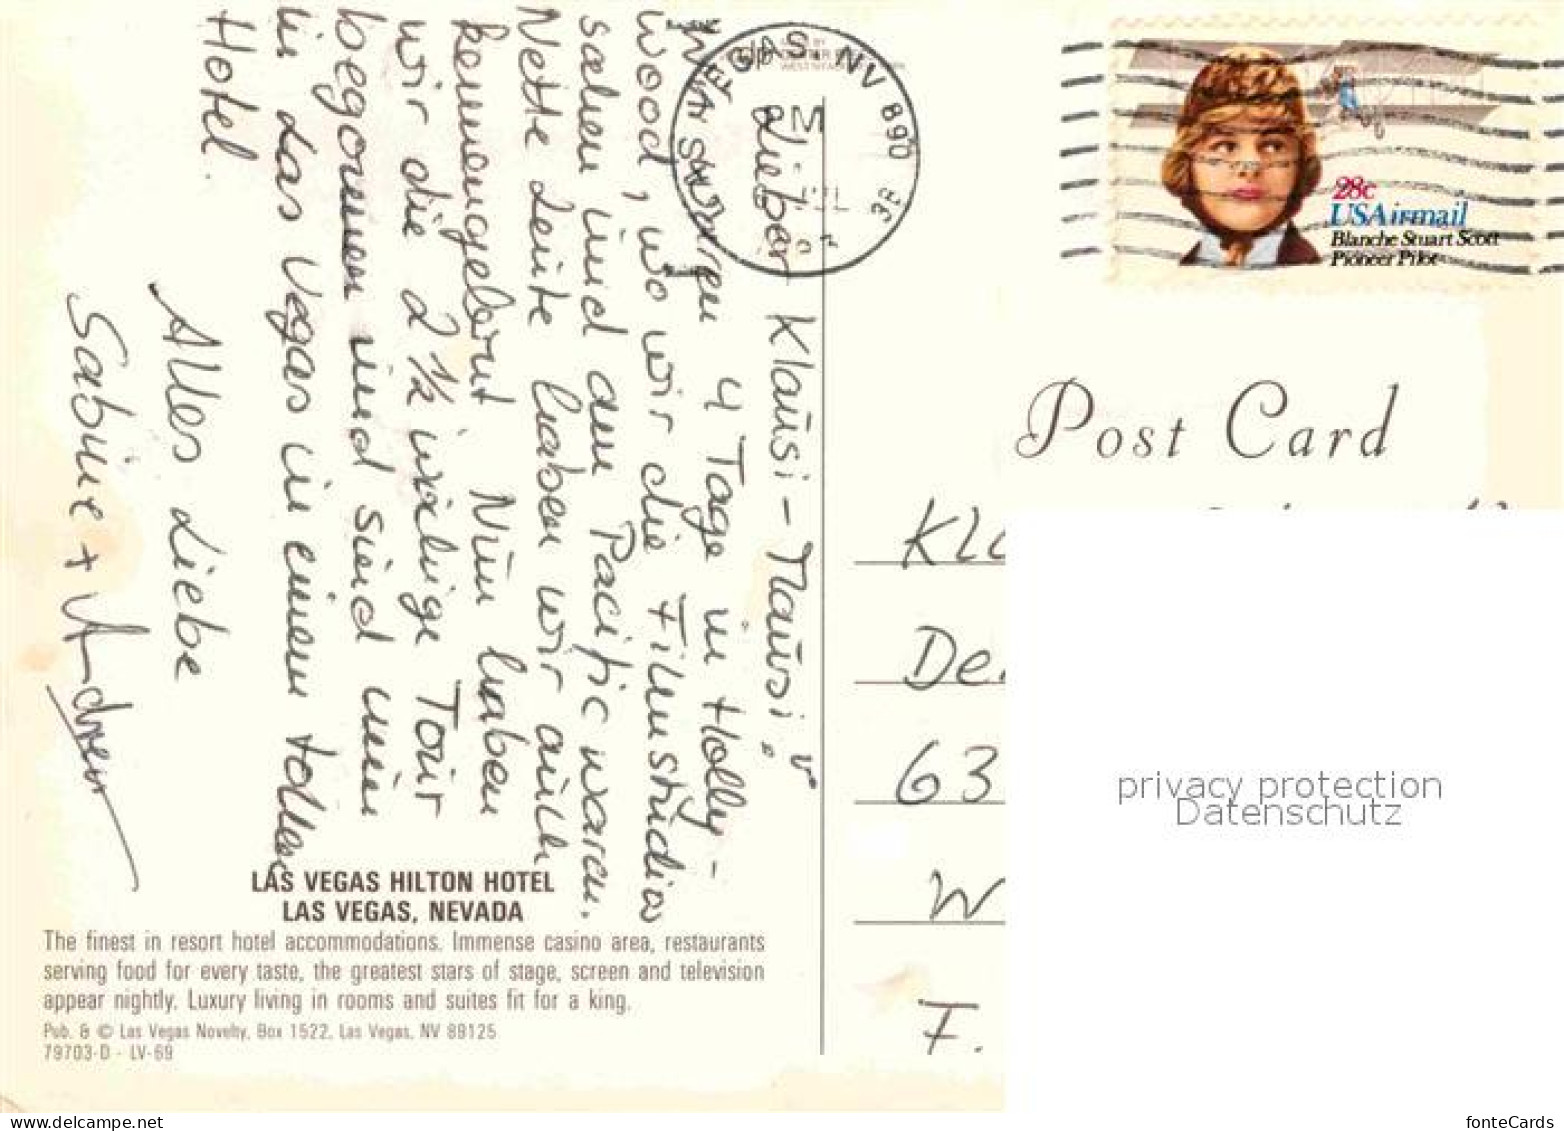 Lieber Klausi-Mausi,
Wir waren 4 Tage in Holly-
wood, wo wir die Filmstudio
sahen und am Pacific waren.
Nette Leute haben wir auch
kennengelernt Nun haben
wir die 2 1/2 wöchige Tour
begonnen und sind nun
in Las Vegas in einem tollen
Hotel.
Alles Liebe
Sabine + Andrew
VEGAS, NV 890
PM
28c
USAirmail
Blanche Stuart Scott
Pioneer Pilot
Post Card
De
63
W
F.
privacy protection
Datenschutz
LAS VEGAS HILTON HOTEL
LAS VEGAS, NEVADA
The finest in resort hotel accommodations. Immense casino area, restaurants
serving food for every taste, the greatest stars of stage, screen and television
appear nightly. Luxury living in rooms and suites fit for a king.
Pub. & © Las Vegas Novelty, Box 1522, Las Vegas, NV 89125
79703-D - LV-69
www.delcampe.net
fonteCards